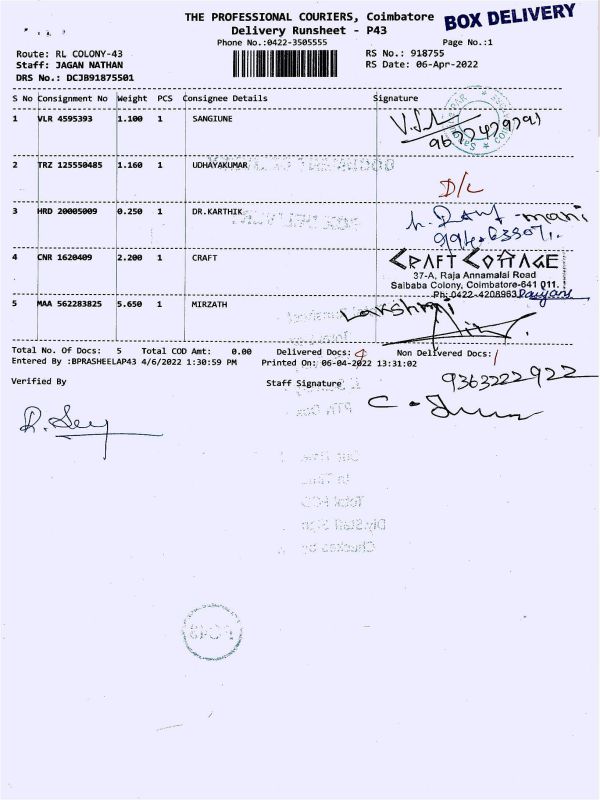 THE PROFESSIONAL COURIERS, Coimbatore
BOX DELIVERY
Delivery Runsheet - P43
Phone No.:0422-3505555
Page No.:1
Route: RL COLONY-43
RS No.: 918755
Staff: JAGAN NATHAN
RS Date: 06-Apr-2022
DRS No.: DCJB91875501
S No Consignment No Weight PCS Consignee Details Signature
1 VLR 4595393 1.100 1 SANGIUNE
2 TRZ 125550485 1.160 1 UDHAYAKUMAR
D/L
3 HRD 20005009 0.250 1 DR.KARTHIK
mani
4 CNR 1620409 2.200 1 CRAFT
CRAFT COTTAGE
37-A, Raja Annamalai Road
Saibaba Colony, Coimbatore-641 011.
Ph: 0422-4208963
5 MAA 562283825 5.650 1 MIRZATH
Lakshmi
Total No. Of Docs: 5 Total COD Amt: 0.00 Delivered Docs: 4 Non Delivered Docs: 1
Entered By :BPRASHEELAP43 4/6/2022 1:30:59 PM Printed On: 06-04-2022 13:31:02
9363222922
Verified By
Staff Signature